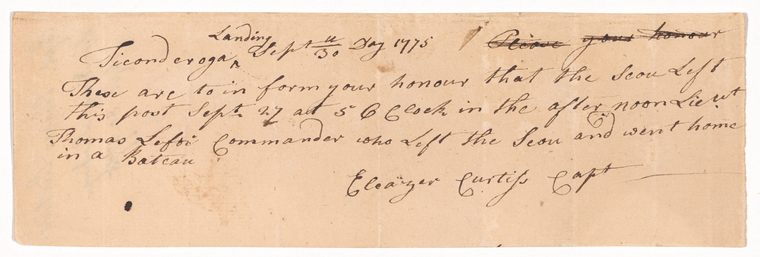 Landing
Ticonderoga ^ Sept 30 Day 1775 Please your honour
These are to in form your honour that the Scou Left
this post Sept 27 att 5 O Clock in the after noon Lieut
Thomas Commander who Left the Scou and went home
in a Bateau
Eleazer Curtiss Capt